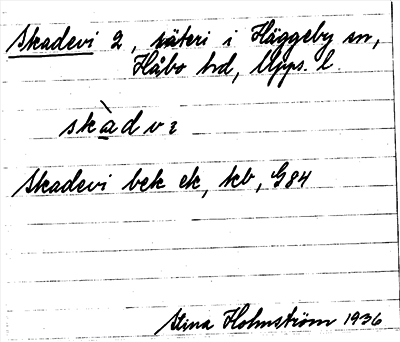 Skadevi 2, säteri i Häggeby sn,
Håbo hd, Upps. l.
skàdvı
Skadevi bek ek, kb, G84
Stina Holmström 1936